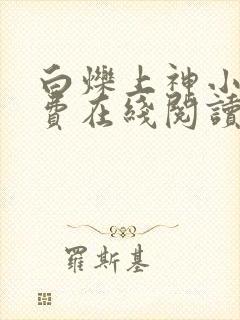 白爍上神小
費在綫閱讀
羅斯基